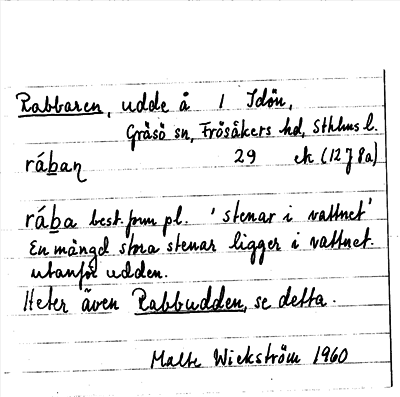 Rabbaren, udde å 1 Idön,
Gräsö sn, Frösåkers hd, Sthlms l.
rába̲n̥ 29 ek (12 J 8a)
rába̲ best. form pl. 'stenar i vattnet'
En mängd stora stenar ligger i vattnet
utanför udden.
Heter även Rabbudden, se detta.
Malte Wickström 1960